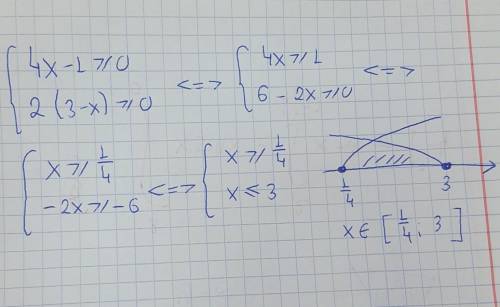 { 4x - 1 ⩾ 0
{ 2 (3 - x) ⩾ 0
<=>
{ 4x ⩾ 1
{ 6 - 2x ⩾ 0
<=>
{ x ⩾ 1/4
{ -2x ⩾ -6
<=>
{ x ⩾ 1/4
{ x ⩽ 3
1/4 3
x ∈ [1/4; 3]